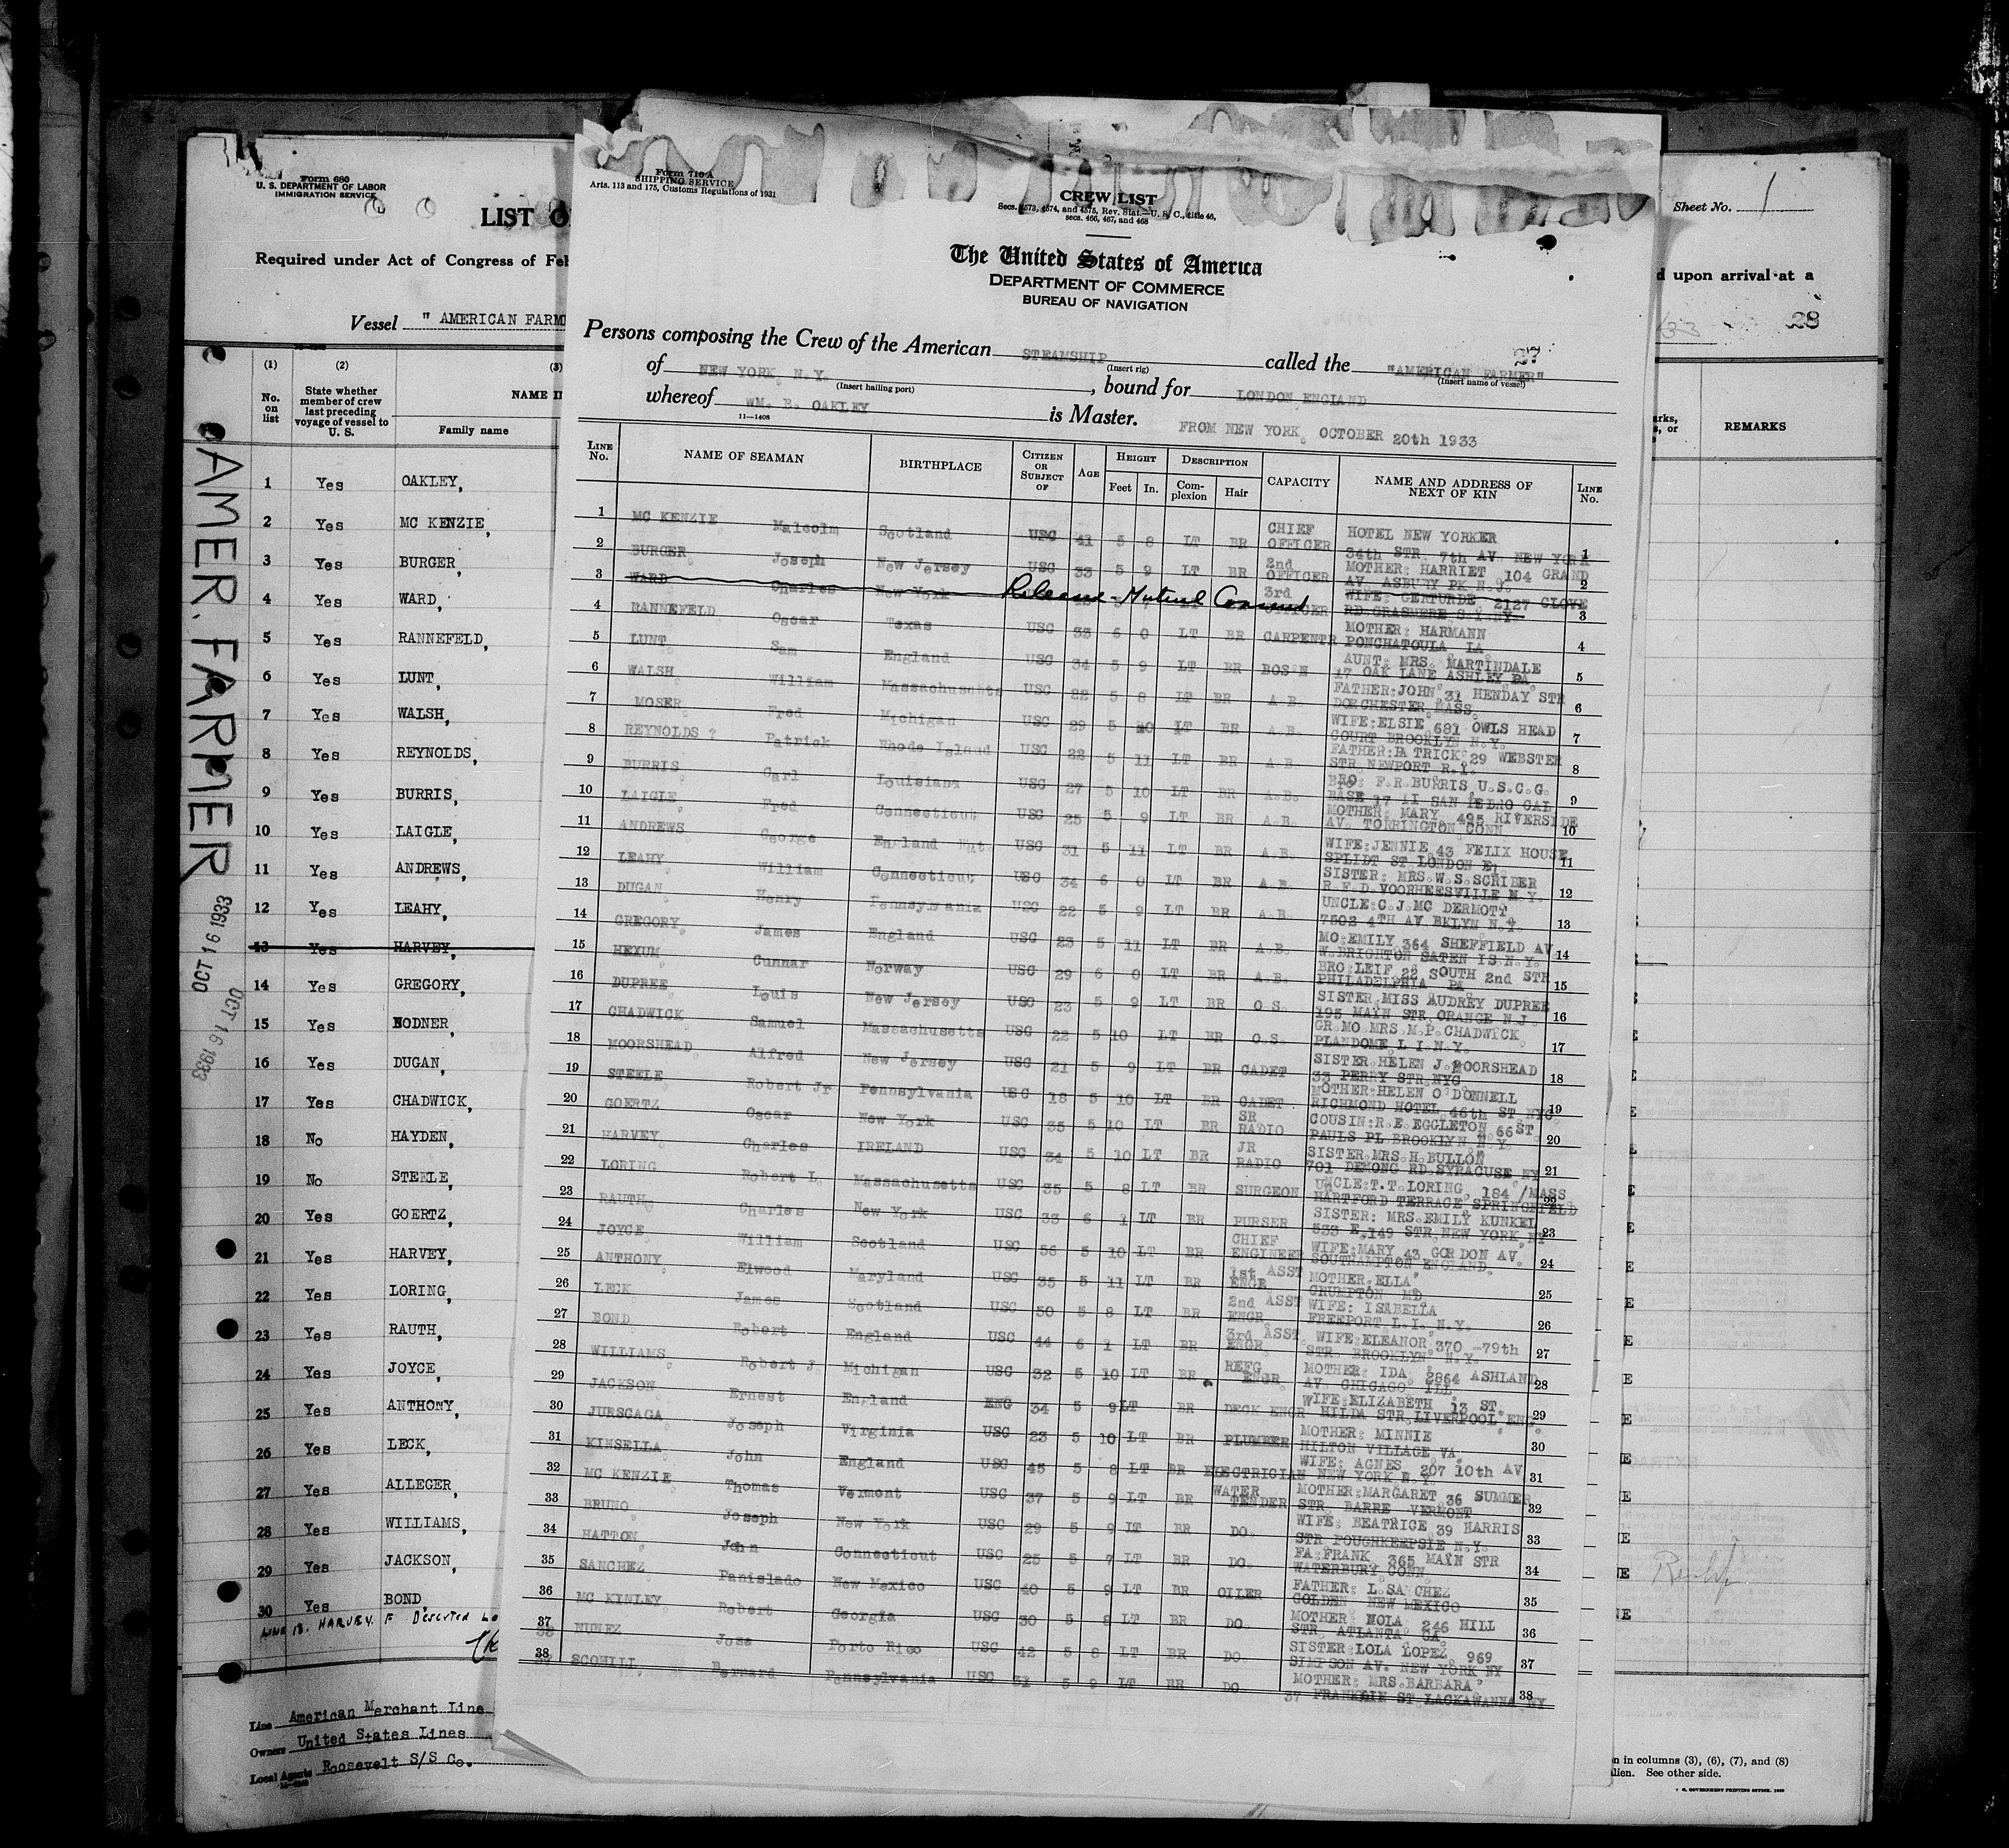 Form 680
U. S. DEPARTMENT OF LABOR
IMMIGRATION SERVICE
LIST O
Required under Act of Congress of Feb
Vessel " AMERICAN FARM
(1) (2) (3)
No. on list
State whether member of crew last preceding voyage of vessel to U. S.
NAME I
Family name
1 Yes OAKLEY,
2 Yes MC KENZIE,
3 Yes BURGER,
4 Yes WARD,
5 Yes RANNEFELD,
6 Yes LUNT,
7 Yes WALSH,
8 Yes REYNOLDS,
9 Yes BURRIS,
10 Yes LAIGLE,
11 Yes ANDREWS,
12 Yes LEAHY,
13 Yes HARVEY,
14 Yes GREGORY,
15 Yes BODNER,
16 Yes DUGAN,
17 Yes CHADWICK,
18 No HAYDEN,
19 No STEELE,
20 Yes GOERTZ,
21 Yes HARVEY,
22 Yes LORING,
23 Yes RAUTH,
24 Yes JOYCE,
25 Yes ANTHONY,
26 Yes LECK,
27 Yes ALLEGER,
28 Yes WILLIAMS,
29 Yes JACKSON,
30 Yes BOND,
LINE 13. HARVEY. F DESERTED
Line American Merchant Line
Owners United States Lines
Local Agents Roosevelt S/S Co.
AMER. FARMER
OCT 16 1933
OCT 16 1933
Form 710 A
SHIPPING SERVICE
Arts. 113 and 175, Customs Regulations of 1931
CREW LIST
Secs. 4573, 4574, and 4575, Rev. Stat.—U. S. C., title 46,
secs. 466, 467, and 468
The United States of America
DEPARTMENT OF COMMERCE
BUREAU OF NAVIGATION
27
Persons composing the Crew of the American STEAMSHIP called the "AMERICAN FARMER"
(Insert rig) (Insert name of vessel)
of NEW YORK, N.Y. , bound for LONDON ENGLAND
(Insert hailing port)
whereof WM. B. OAKLEY is Master.
11—1408
FROM NEW YORK, OCTOBER 20th 1933
LINE No. NAME OF SEAMAN BIRTHPLACE CITIZEN OR SUBJECT OF AGE HEIGHT Feet In. DESCRIPTION Complexion Hair CAPACITY NAME AND ADDRESS OF NEXT OF KIN LINE No.
1 MC KENZIE Malcolm Scotland USC 41 5 8 LT BR CHIEF OFFICER HOTEL NEW YORKER 34th STR 7th AV. NEW YORK 1
2 BURGER, Joseph New Jersey USC 33 5 9 LT BR 2nd OFFICER MOTHER: HARRIET 104 GRAND AV. ASBURY PK N.J. 2
3 WARD Charles New York Release - Mutual Consent 3rd OFFICER WIFE: GERTURDE 2127 CLOVE RD. GRASMERE S.I. NY. 3
4 RANNEFELD Oscar Texas USC 33 6 0 LT BR CARPENTR MOTHER: HARMANN PONCHATOULA LA 4
5 LUNT Sam England USC 34 5 9 LT BR BOS'N AUNT: MRS. MARTINDALE 17 OAK LANE ASHLEY PA 5
6 WALSH William Massachusetts USC 22 5 8 LT BR A.B. FATHER: JOHN 31 HENDAY STR DORCHESTER MASS. 6
7 MOSER Fred Michigan USC 29 5 10 LT BR A.B. WIFE: ELSIE 681 OWLS HEAD COURT BROOKLYN N.Y. 7
8 REYNOLDS ? Patrick Rhode Island USC 22 5 11 LT BR A.B. FATHER: PATRICK 29 WEBSTER STR NEWPORT R.I. 8
9 BURRIS Carl Louisiana USC 27 5 10 LT BR A.B. BRO: F.R. BURRIS U.S.C.G. BASE 17 SAN PEDRO CAL 9
10 LAIGLE, Fred Connecticut USC 25 5 9 LT BR A.B. MOTHER: MARY 495 RIVERSIDE AV. TORRINGTON CONN 10
11 ANDREWS George England Nat. USC 31 5 11 LT BR A.B. WIFE: JENNIE 43 FELIX HOUSE SPLIDT ST LONDON E. 11
12 LEAHY William Connecticut USC 34 6 0 LT BR A.B. SISTER: MRS. W.S. SCRIBER R.F.D. VOORHEESVILLE N.Y. 12
13 DUGAN Henry Pennsylvania USC 22 5 9 LT BR A.B. UNCLE: C.J. MC DERMOTT 7502 4TH AV BKLYN N.Y. 13
14 GREGORY, James England USC 23 5 11 LT BR A.B. MO: EMILY 364 SHEFFIELD AV W. BRIGHTON SATEN IS N.Y. 14
15 HEXUM Gunnar Norway USC 29 6 0 LT BR A.B. BRO: LEIF 22 SOUTH 2nd STR PHILADELPHIA PA 15
16 DUPREE Louis New Jersey USC 23 5 9 LT BR O.S. SISTER: MISS AUDREY DUPREE 195 MAIN STR ORANGE N.J. 16
17 CHADWICK Samuel Massachusetts USC 22 5 10 LT BR O.S. GR. MO MRS M.P. CHADWICK PLANDOME L I N.Y. 17
18 MOORSHEAD Alfred New Jersey USC 21 5 9 LT BR CADET SISTER: HELEN J. MOORSHEAD 33 PERRY STR. NYC 18
19 STEELE Robert Jr Pennsylvania USC 18 5 10 LT BR CADET MOTHER: HELEN O'DONNELL RICHMOND HOTEL 46th ST NYC 19
20 GOERTZ Oscar New York USC 35 5 10 LT BR SR RADIO COUSIN: R.E. EGGLETON 66 ST PAULS PL BROOKLYN N.Y. 20
21 HARVEY Charles IRELAND USC 34 5 10 LT BR JR RADIO SISTER MRS. H. BULLON 701 DEMONG RD. SYRACUSE NY 21
22 LORING Robert L. Massachusetts USC 35 5 8 LT BR SURGEON UNCLE: T.T. LORING, 184 /MASS HARTFORD TERRACE SPRINGFIELD 22
23 RAUTH Charles New York USC 33 6 1 LT BR PURSER SISTER: MRS. EMILY KUNKEL 533 E. 149 STR. NEW YORK NY 23
24 JOYCE William Scotland USC 56 5 10 LT BR CHIEF ENGINEER WIFE: MARY 43 GORDON AV. SOUTHAMPTON ENGLAND. 24
25 ANTHONY Elwood Maryland USC 35 5 11 LT BR 1st ASST ENGR MOTHER ELLA CRUMPTON MD 25
26 LECK James Scotland USC 50 5 8 LT BR 2nd ASST ENGR. WIFE: ISABELLA FREEPORT L.I. N.Y. 26
27 BOND Robert England USC 44 6 1 LT BR 3rd ASST ENGR WIFE: ELEANOR 370 -79th STR. BROOKLYN N.Y. 27
28 WILLIAMS Robert J. Michigan USC 32 5 10 LT BR REFG ENGR MOTHER: IDA 2864 ASHLAND AV. CHICAGO ILL 28
29 JACKSON Ernest England ENG 34 5 9 LT BR DECK ENGR WIFE: ELIZABETH 13 ST. HILDA STR. LIVERPOOL ENG. 29
30 JURSCAGA Joseph Virginia USC 23 5 10 LT BR PLUMBER MOTHER: MINNIE HILTON VILLAGE VA. 30
31 KINSELLA John England USC 45 5 8 LT BR ELECTRICIAN WIFE: AGNES 207 10th AV NEW YORK N.Y. 31
32 MC KENZIE Thomas Vermont USC 37 5 9 LT BR WATER TENDER MOTHER: MARGARET 36 SUMMER STR. BARRE VERMONT 32
33 BRUNO Joseph New York USC 29 5 9 LT BR DO. WIFE: BEATRICE 39 HARRIS STR POUGHKEEPSIE N.Y. 33
34 HATTON John Connecticut USC 25 5 7 LT BR DO. FA: FRANK 365 MAIN STR WATERBURY CONN. 34
35 SANCHEZ Panislado New Mexico USC 40 5 9 LT BR OILER FATHER: L. SANCHEZ GOLDEN NEW MEXICO 35
36 MC KINLEY Robert Georgia USC 30 5 8 LT BR DO. MOTHER NOLA 246 HILL STR. ATLANTA GA. 36
37 NUNEZ Jose Porto Rico USC 42 5 8 LT BR DO. SISTER: LOLA LOPEZ 969 SIMPSON AV. NEW YORK NY 37
38 SCOHILL Bernard Pennsylvania USC 31 5 9 LT BR DO MOTHER: MRS. BARBARA 37 FRANKLIN ST. LACKAWANNA NY 38
Sheet No. 1
d upon arrival at a
28
REMARKS
n in columns (3), (6), (7), and (8)
lien. See other side.